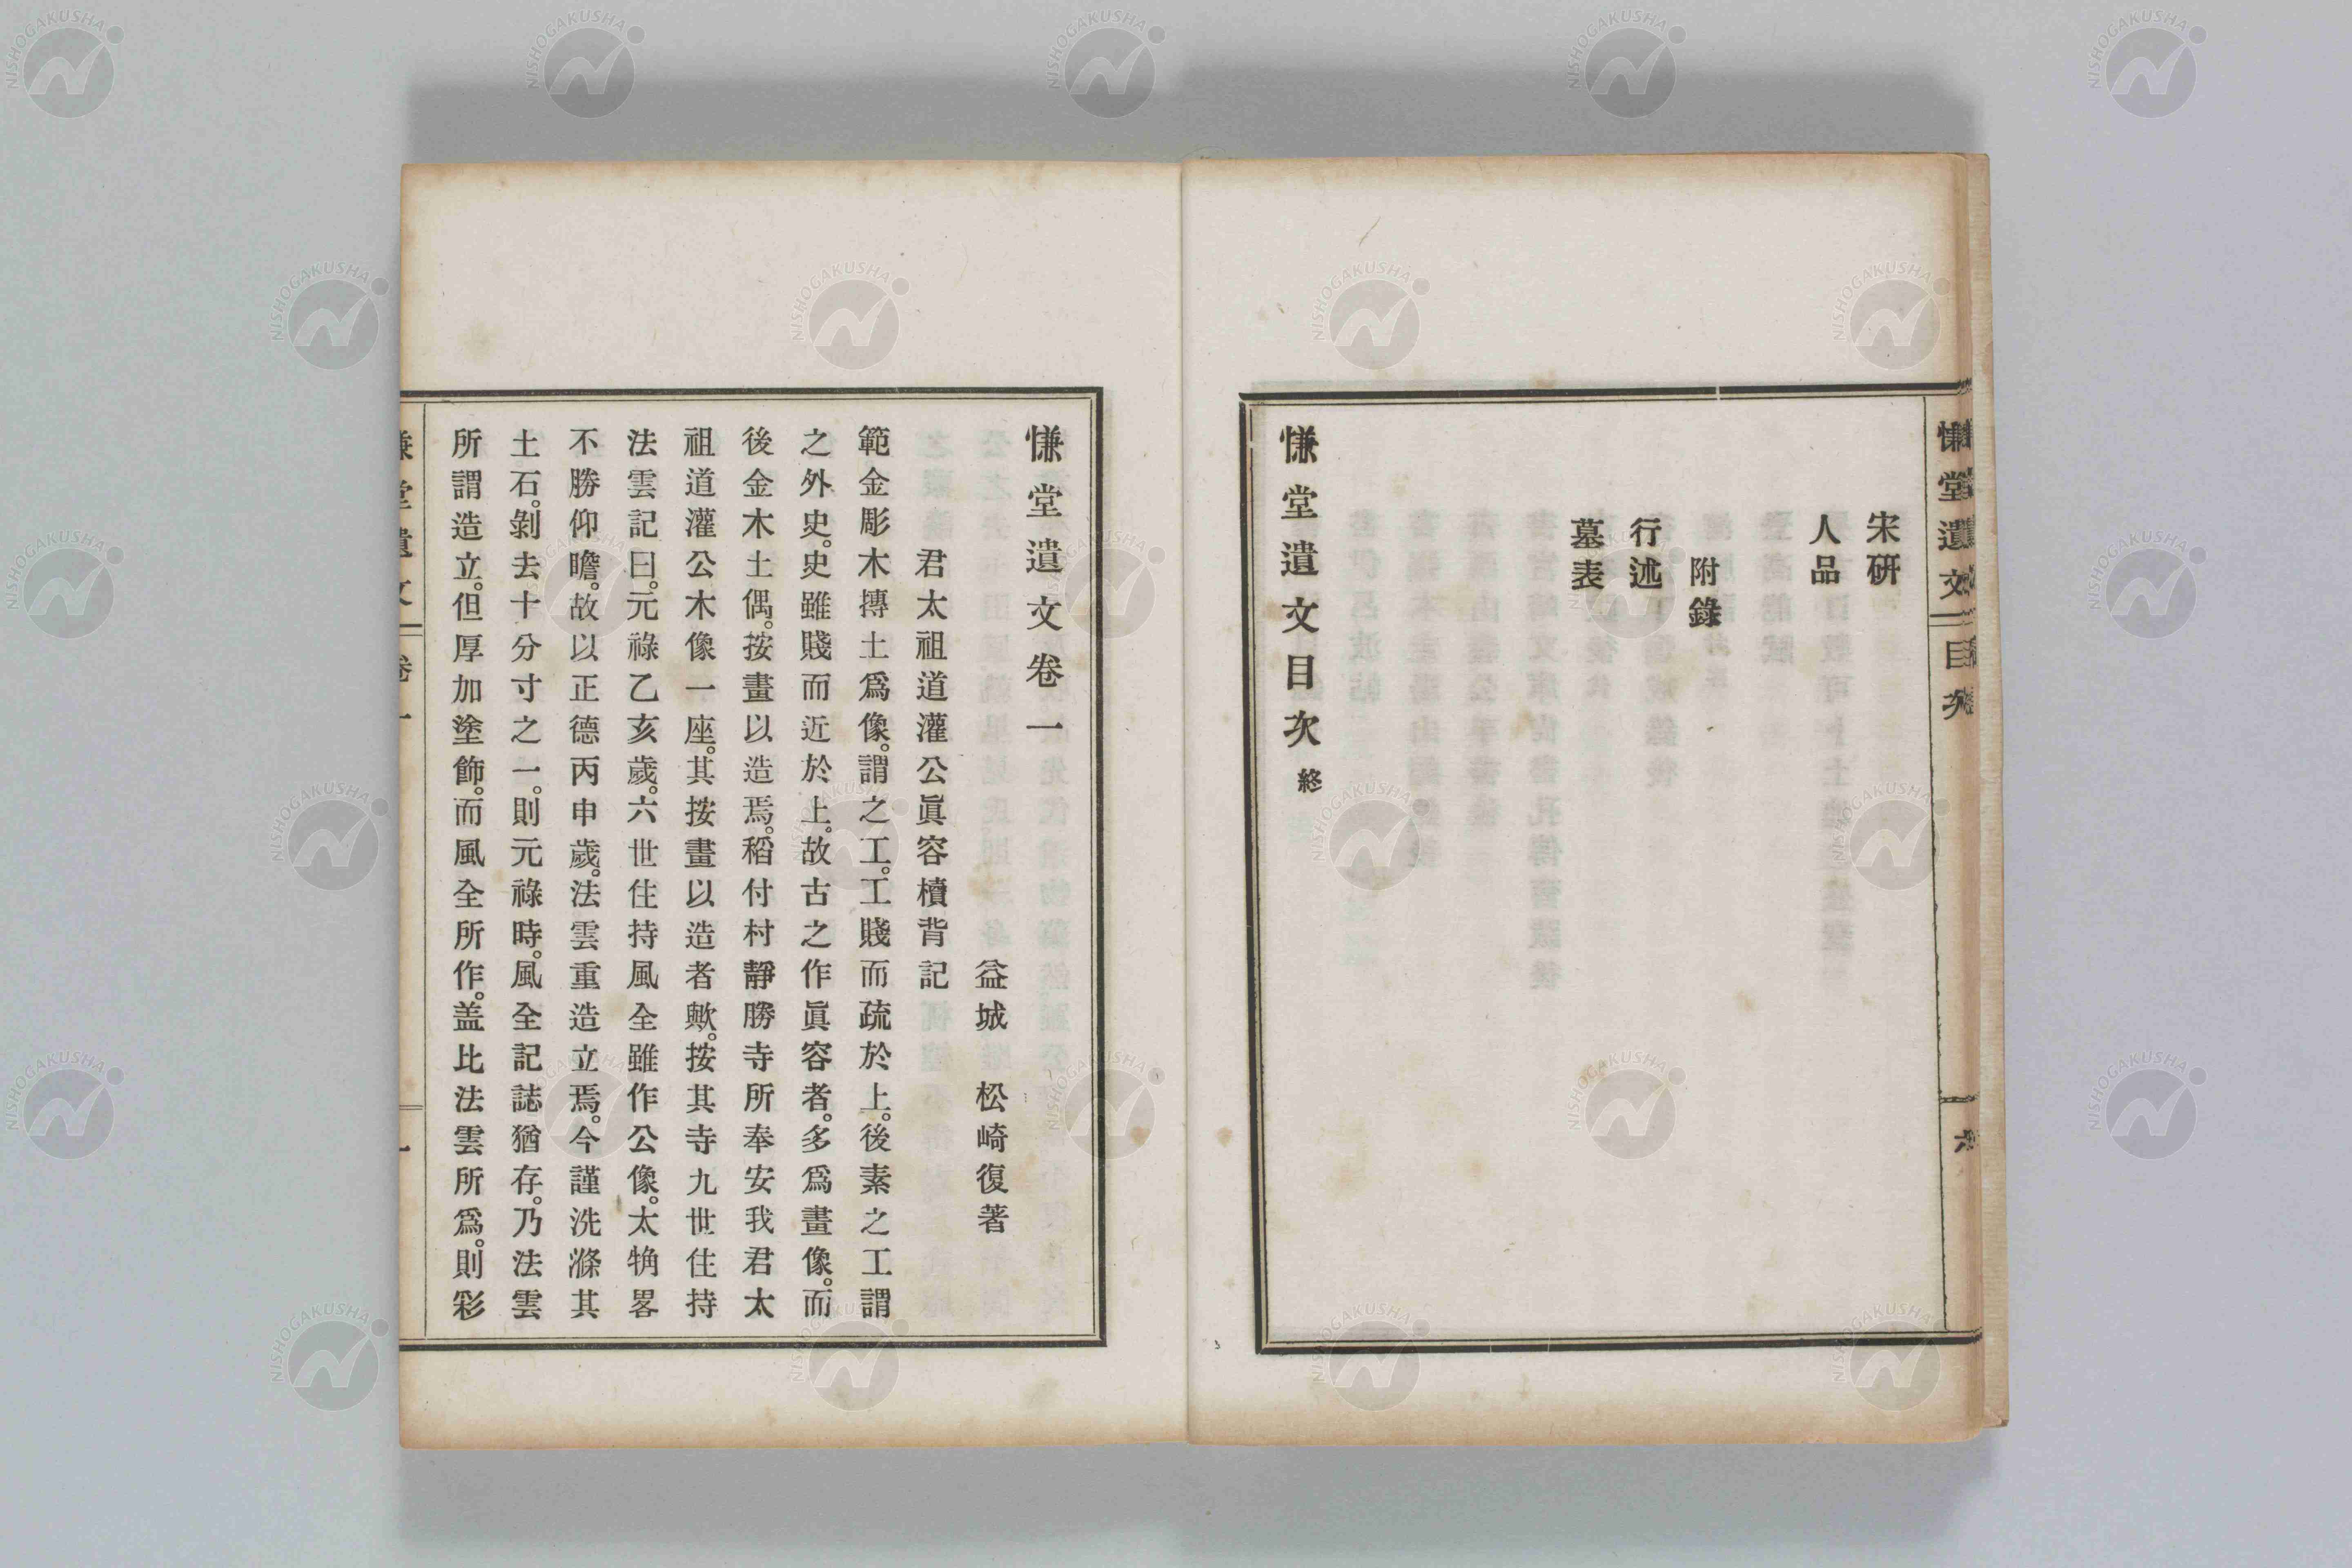 慊堂遺文 目次 六
宋硏
人品
附錄
行述
墓表
慊堂遺文目次 終
慊堂遺文卷一
益城 松崎復著
君太祖道灌公眞容櫝背記
範金彫木摶土爲像。謂之工。工賤而疏於上。後素之工謂
之外史。史雖賤而近於上。故古之作眞容者。多爲畫像。而
後金木土偶。按畫以造焉。稻付村靜勝寺所奉安我君太
祖道灌公木像一座。其按畫以造者歟。按其寺九世住持
法雲記曰。元祿乙亥歲。六世住持風全雖作公像。太觕畧
不勝仰瞻。故以正德丙申歲。法雲重造立焉。今謹洗滌其
土石。剝去十分寸之一。則元祿時。風全記誌猶存。乃法雲
所謂造立。但厚加塗飾。而風全所作。盖比法雲所爲。則彩
慊堂遺文 卷一 一
NISHOGAKUSHA